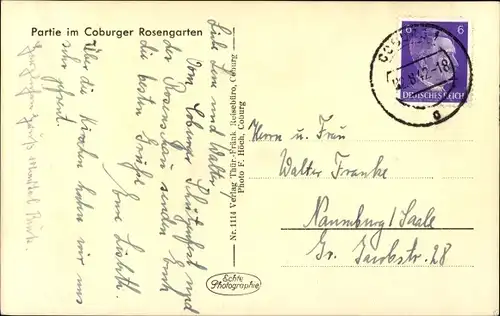 Partie im Coburger Rosengarten
Liebe Lene und Walter!
Vom Coburger Schützenfest und
der Rosenschau senden Euch
die besten Grüße
Eure Lisbeth.
Über die Kirschen haben wir uns
sehr gefreut.
Nr. 1114 Verlag Thür.-Fränk. Reisebüro, Coburg
Photo F. Höch, Coburg
Echte
Photographie
COBURG 1
8.42-18
g
6 6
DEUTSCHES REICH
Herrn u. Frau
Walter Franke
Naumburg/Saale
Gr. Jacobstr. 28